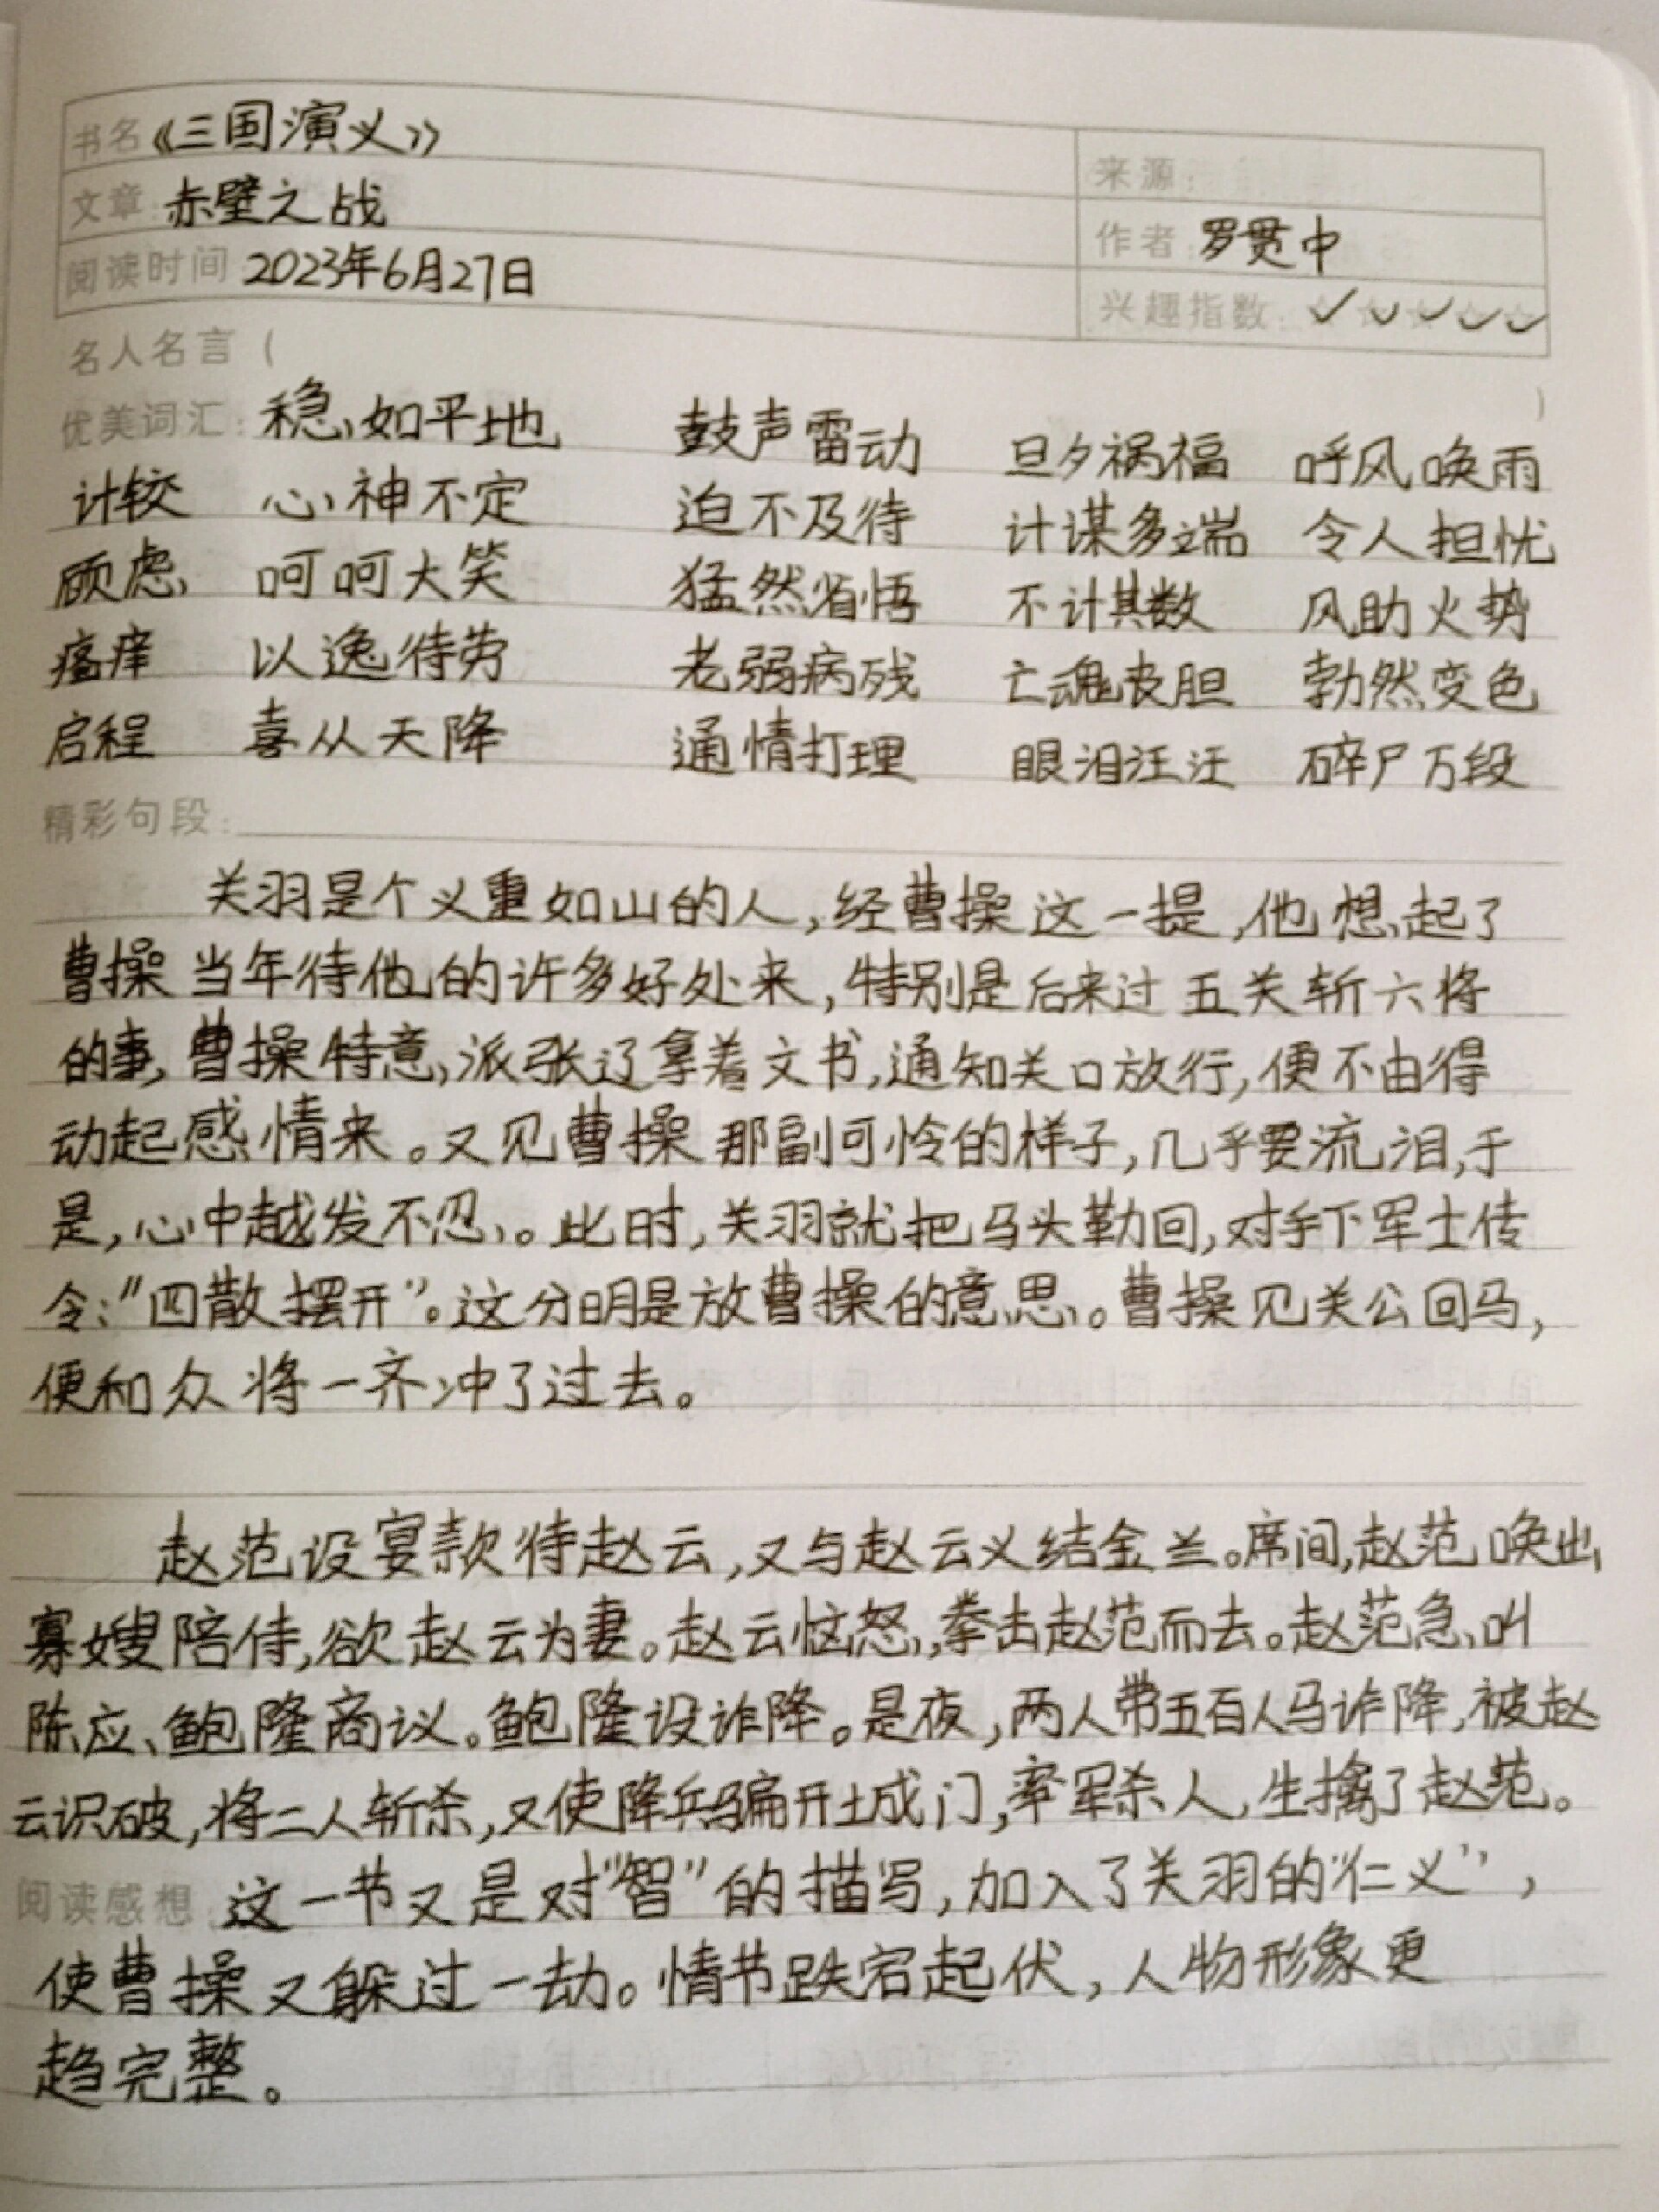 书名《三国演义》
来源:
文章:赤壁之战
作者:罗贯中
阅读时间:2023年6月27日
兴趣指数:
名人名言(                )
优美词汇:稳如平地 鼓声雷动 旦夕祸福 呼风唤雨
计较 心神不定 迫不及待 计谋多端 令人担忧
顾虑 呵呵大笑 猛然省悟 不计其数 风助火势
瘙痒 以逸待劳 老弱病残 亡魂丧胆 勃然变色
启程 喜从天降 通情打理 眼泪汪汪 碎尸万段
精彩句段:
关羽是个义重如山的人,经曹操这一提,他想起了
曹操当年待他的许多好处来,特别是后来过五关斩六将
的事,曹操特意派张辽拿着文书,通知关口放行,便不由得
动起感情来。又见曹操那副可怜的样子,几乎要流泪,于
是,心中越发不忍。此时,关羽就把马头勒回,对手下军士传
令:"四散摆开"。这分明是放曹操的意思。曹操见关公回马,
便和众将一齐冲了过去。
赵范设宴款待赵云,又与赵云义结金兰。席间,赵范唤出
寡嫂陪侍,欲赵云为妻。赵云恼怒,拳击赵范而去。赵范急叫
陈应、鲍隆商议。鲍隆设诈降。是夜,两人带五百人马诈降,被赵
云识破,将二人斩杀,又使降兵骗开城门,率军杀人,生擒了赵范。
阅读感想:这一节又是对"智"的描写,加入了关羽的"仁义",
使曹操又躲过一劫。情节跌宕起伏,人物形象更
趋完整。